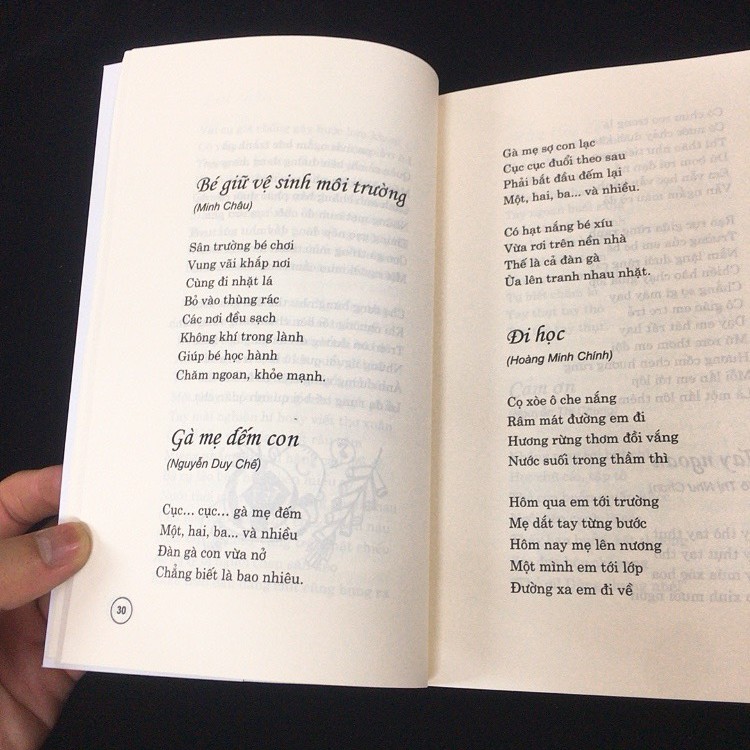 Bé giữ vệ sinh môi trường
(Minh Châu)
Sân trường bé chơi
Vung vãi khắp nơi
Cùng đi nhặt lá
Bỏ vào thùng rác
Các nơi đều sạch
Không khí trong lành
Giúp bé học hành
Chăm ngoan, khỏe mạnh.
Gà mẹ đếm con
(Nguyễn Duy Chế)
Cục... cục... gà mẹ đếm
Một, hai, ba... và nhiều
Đàn gà con vừa nở
Chẳng biết là bao nhiêu.
30
Gà mẹ sợ con lạc
Cục cục đuổi theo sau
Phải bắt đầu đếm lại
Một, hai, ba... và nhiều.
Có hạt nắng bé xíu
Vừa rơi trên nền nhà
Thế là cả đàn gà
Ùa lên tranh nhau nhặt.
Đi học
(Hoàng Minh Chính)
Cọ xòe ô che nắng
Râm mát đường em đi
Hương rừng thơm đồi vắng
Nước suối trong thầm thì
Hôm qua em tới trường
Mẹ dắt tay từng bước
Hôm nay mẹ lên nương
Một mình em tới lớp
Đường xa em đi về